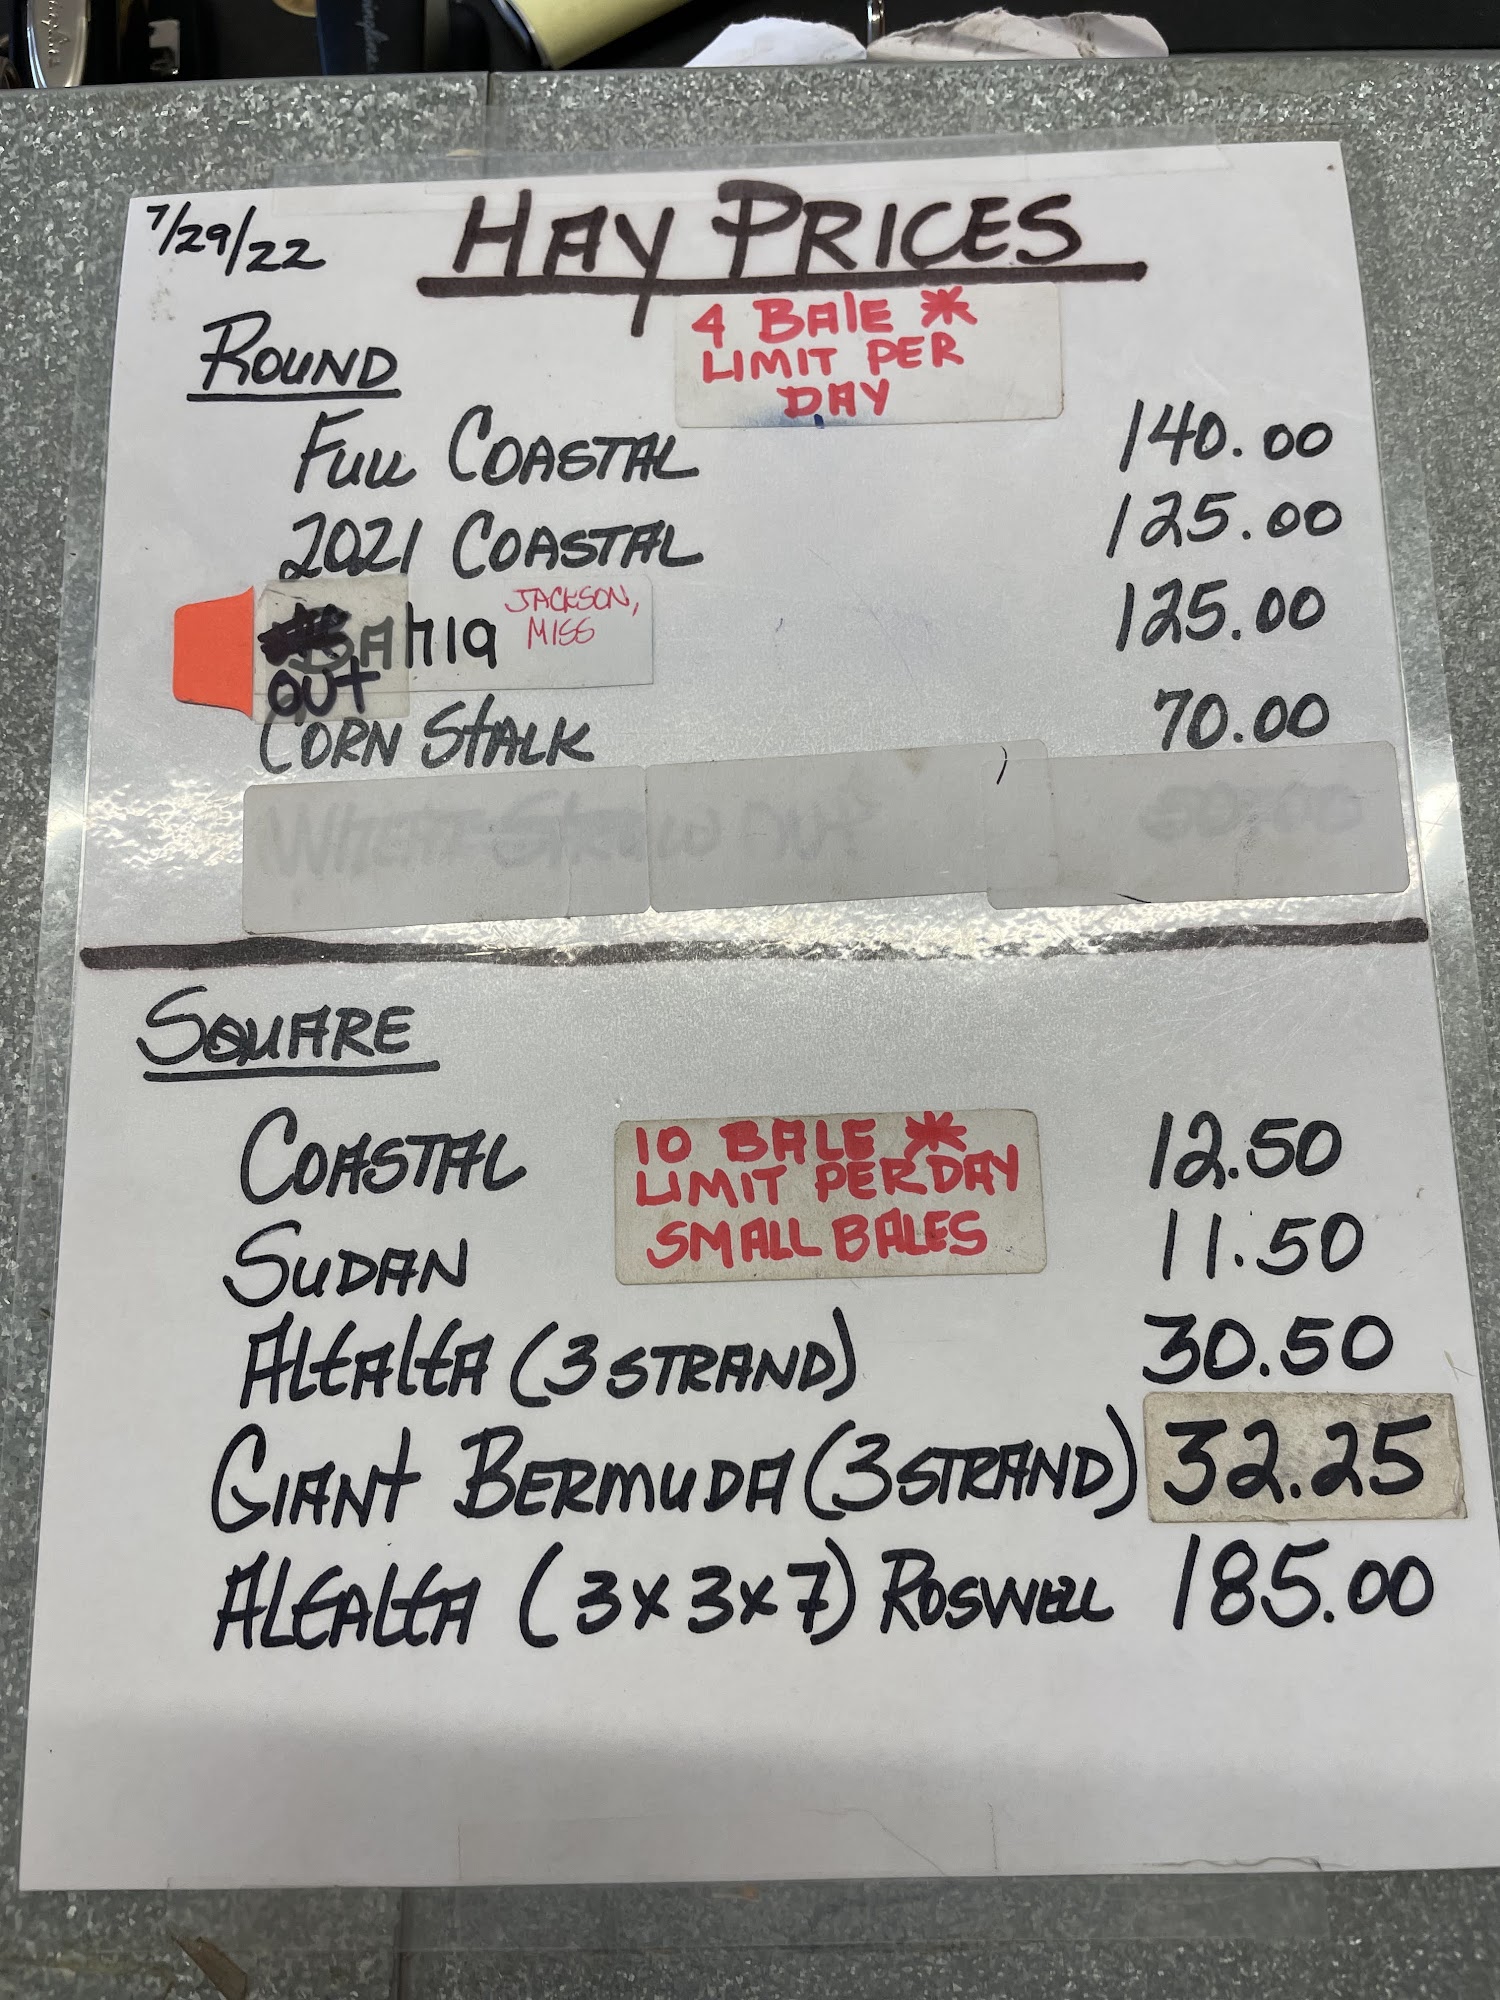 7/29/22 HAY PRICES
4 BALE *
LIMIT PER
DAY
ROUND
FULL COASTAL 140.00
2021 COASTAL 125.00
BAHIA JACKSON, MISS 125.00
OUT
CORN STALK 70.00
WHEAT STRAW
SQUARE
10 BALE *
LIMIT PER DAY
SMALL BALES
COASTAL 12.50
SUDAN 11.50
ALFALFA (3 STRAND) 30.50
GIANT BERMUDA (3 STRAND) 32.25
ALFALFA (3x3x7) ROSWELL 185.00